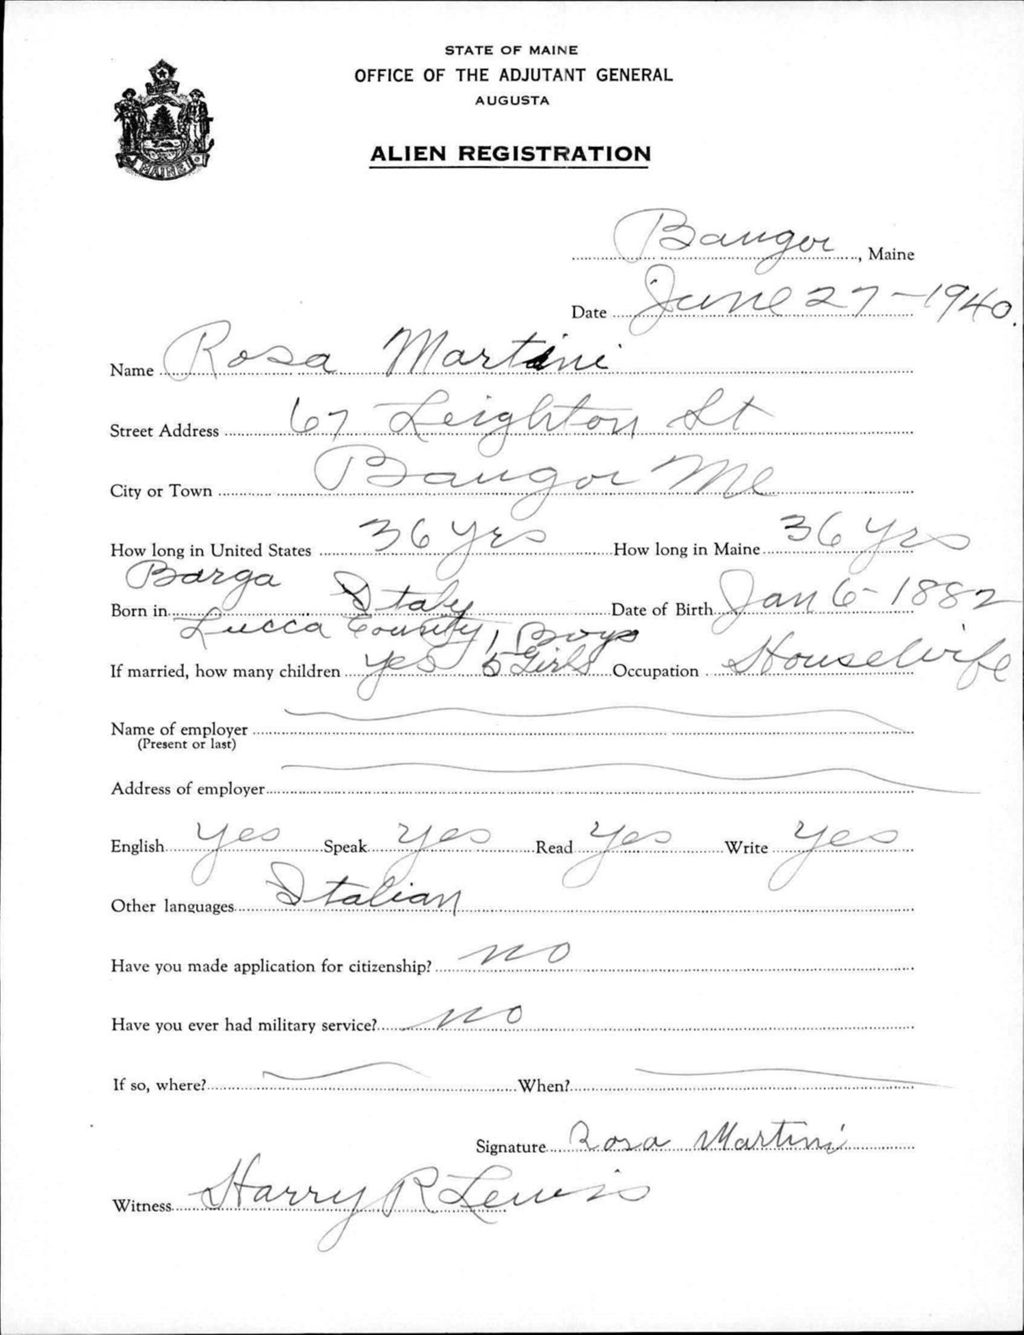 STATE OF MAINE
OFFICE OF THE ADJUTANT GENERAL
AUGUSTA
ALIEN REGISTRATION
Bangor, Maine
Date June 27-1940.
Name Rosa Martini
Street Address 67 Leighton St
City or Town Bangor Me
How long in United States 36 yrs How long in Maine 36 yrs
Barga
Born in Italy Date of Birth Jan 6-1882
Lucca County, 1 Boys
If married, how many children yes 5 Girls Occupation Housewife
Name of employer
(Present or last)
Address of employer
English yes Speak yes Read yes Write yes
Other languages Italian
Have you made application for citizenship? no
Have you ever had military service? no
If so, where? When?
Signature Rosa Martini
Witness Harry R Lewis
MAINE